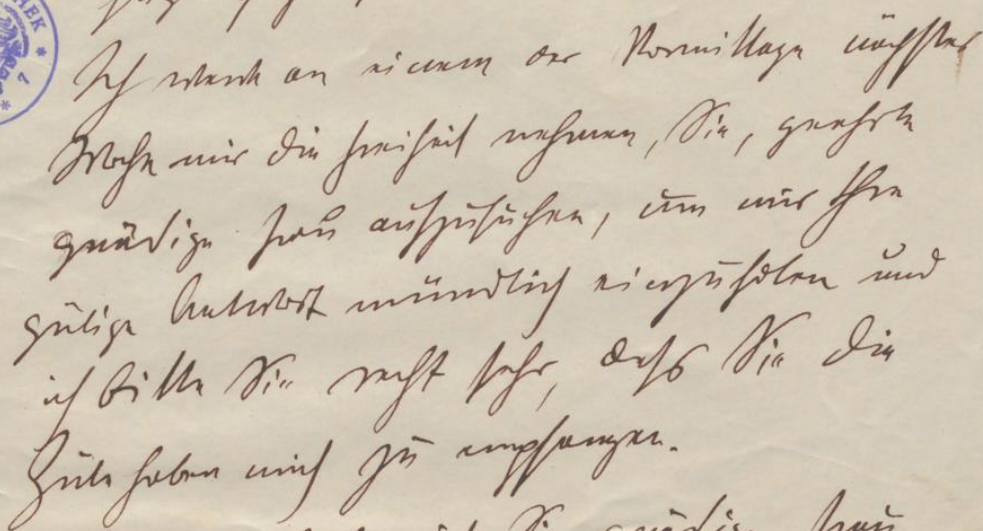 Ich werde an einem der Vormittage nächster
Woche mir die Freiheit nehmen, Sie, geehrte
gnädige Frau aufzusuchen, um mir Ihre
gütige Antwort mündlich einzuholen und
ich bitte Sie recht sehr, dass Sie die
Güte haben mich zu empfangen.
Sie gnädige Frau